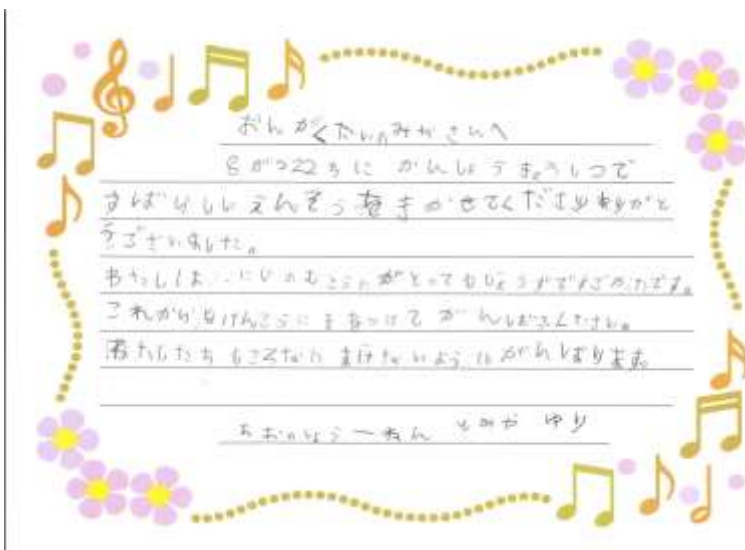 おんがくたいのみなさんへ
8がつ22日に かんしょうきょうしつで
すばらしいえんそうをきかせてくださりありがと
うございました。
わたしは、にじのむこうにがとってもじょうずですごかったです。
これからもけんこうにきをつけて がんばってください。
わたしたちもコロナにまけないようにがんばります。
一ねん とみや ゆり